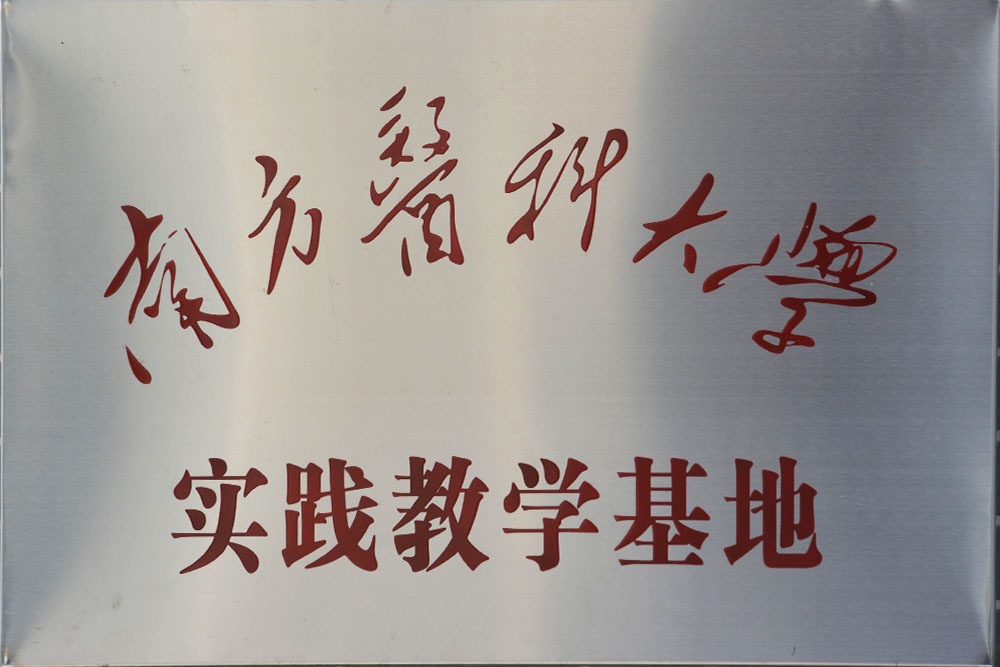 南方醫科大學
实践教学基地